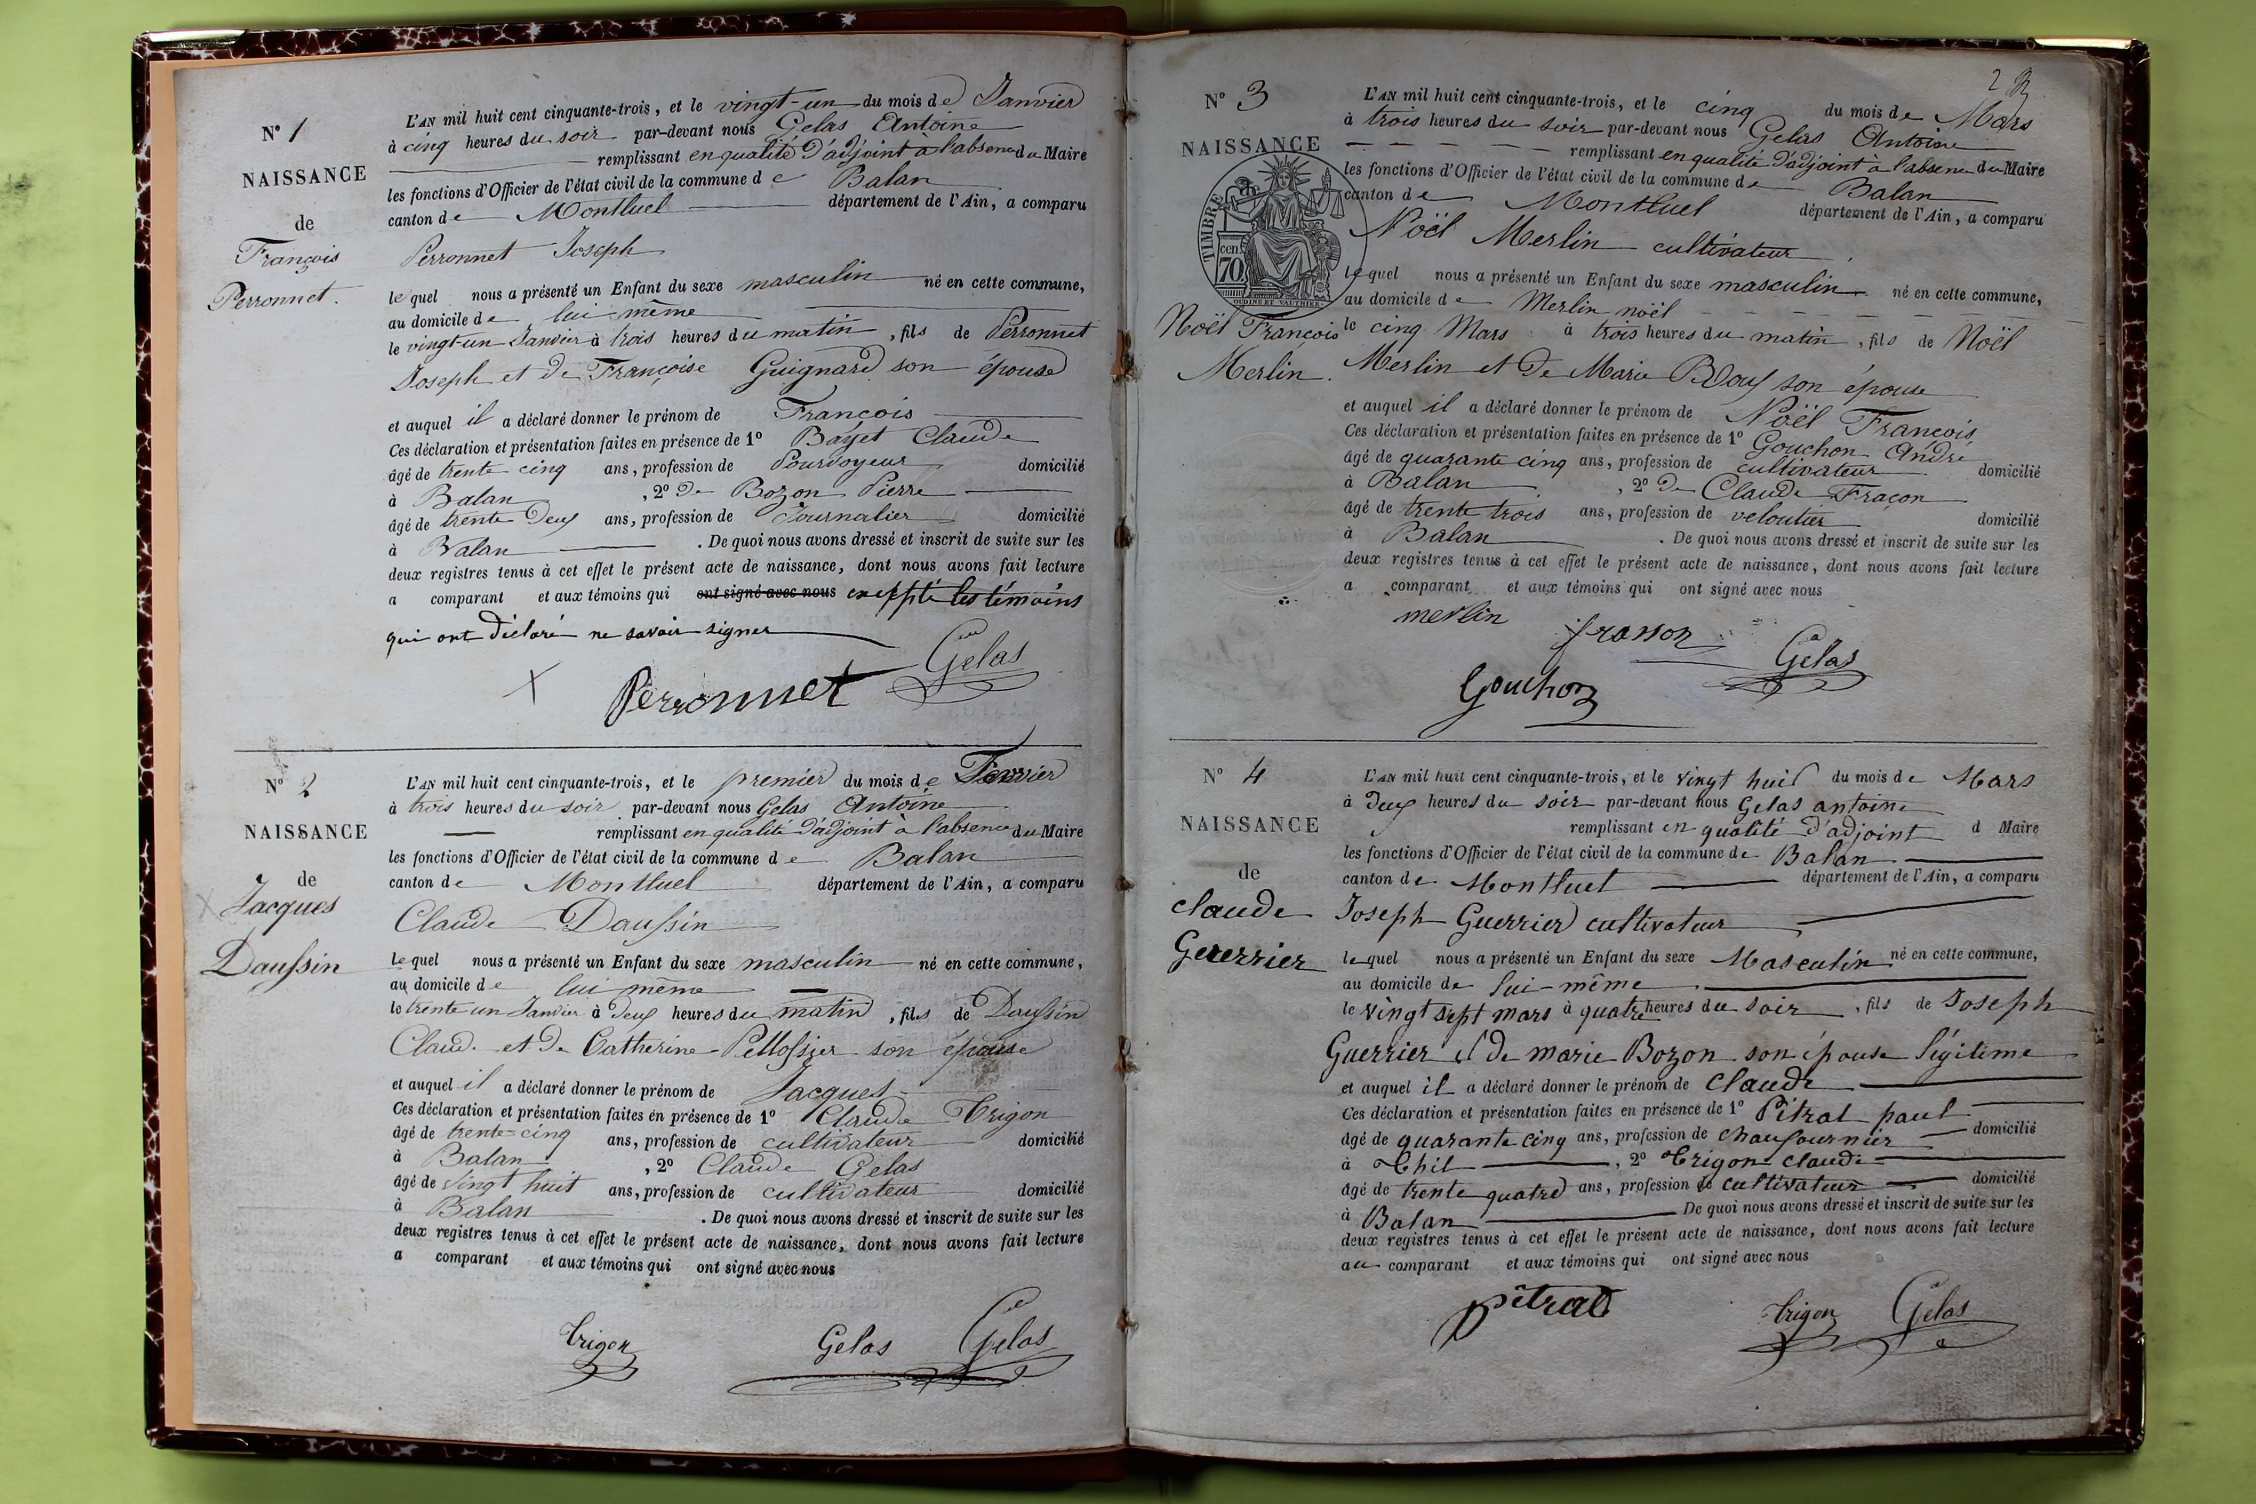 N° 1
NAISSANCE
de
François
Perronnet.
L'AN mil huit cent cinquante-trois, et le vingt-un du mois de Janvier
à cinq heures du soir par-devant nous Gelas Antoine
remplissant en qualité d'adjoint à l'absence du Maire
les fonctions d'Officier de l'état civil de la commune de Balan
canton de Montluel département de l'Ain, a comparu
Perronnet Joseph
lequel nous a présenté un Enfant du sexe masculin né en cette commune,
au domicile de lui même
le vingt-un Janvier à trois heures du matin, fils de Perronnet
Joseph et de Françoise Guignard son épouse
et auquel il a déclaré donner le prénom de François
Ces déclaration et présentation faites en présence de 1° Bayet Claude
âgé de trente cinq ans, profession de Pourvoyeur domicilié
à Balan, 2° de Bozon Pierre
âgé de trente deux ans, profession de Journalier domicilié
à Balan. De quoi nous avons dressé et inscrit de suite sur les
deux registres tenus à cet effet le présent acte de naissance, dont nous avons fait lecture
a comparant et aux témoins qui ont signé avec nous excepté les témoins
qui ont déclaré ne savoir signer
Gelas
Perronnet
N° 2
NAISSANCE
de
Jacques
Daussin
L'AN mil huit cent cinquante-trois, et le premier du mois de Fevrier
à trois heures du soir par-devant nous Gelas Antoine
remplissant en qualité d'adjoint à l'absence du Maire
les fonctions d'Officier de l'état civil de la commune de Balan
canton de Montluel département de l'Ain, a comparu
Claude Daussin
lequel nous a présenté un Enfant du sexe masculin né en cette commune,
au domicile de lui même
le trente un Janvier à deux heures du matin, fils de Daussin
Claude et de Catherine Pellossier son épouse
et auquel il a déclaré donner le prénom de Jacques
Ces déclaration et présentation faites en présence de 1° Claude Trigon
âgé de trente-cinq ans, profession de cultivateur domicilié
à Balan, 2° Claude Gelas
âgé de vingt huit ans, profession de cultivateur domicilié
à Balan. De quoi nous avons dressé et inscrit de suite sur les
deux registres tenus à cet effet le présent acte de naissance, dont nous avons fait lecture
a comparant et aux témoins qui ont signé avec nous
Trigon Gelas Gelas
2
N° 3
NAISSANCE
TIMBRE
70 cen
OUDINÉ ET VAUTHIER
Noël François
Merlin.
L'AN mil huit cent cinquante-trois, et le cinq du mois de Mars
à trois heures du soir par-devant nous Gelas Antoine
remplissant en qualité d'adjoint à l'absence du Maire
les fonctions d'Officier de l'état civil de la commune de Balan
canton de Montluel département de l'Ain, a comparu
Noël Merlin cultivateur
lequel nous a présenté un Enfant du sexe masculin né en cette commune,
au domicile de Merlin noël
le cinq Mars à trois heures du matin, fils de Noël
Merlin et de Marie son épouse
et auquel il a déclaré donner le prénom de Noël François
Ces déclaration et présentation faites en présence de 1° Gouchon André
âgé de quarante cinq ans, profession de cultivateur domicilié
à Balan, 2° de Claude Fraçon
âgé de trente trois ans, profession de veloutier domicilié
à Balan. De quoi nous avons dressé et inscrit de suite sur les
deux registres tenus à cet effet le présent acte de naissance, dont nous avons fait lecture
a comparant et aux témoins qui ont signé avec nous
merlin frasson Gelas
Gouchon
N° 4
NAISSANCE
de
claude
Guerrier
L'AN mil huit cent cinquante-trois, et le vingt huit du mois de Mars
à deux heures du soir par-devant nous Gelas antoine
remplissant en qualité d'adjoint d Maire
les fonctions d'Officier de l'état civil de la commune de Balan
canton de Montluel département de l'Ain, a comparu
Joseph Guerrier cultivateur
lequel nous a présenté un Enfant du sexe Masculin né en cette commune,
au domicile de lui-même
le vingt sept mars à quatre heures du soir, fils de Joseph
Guerrier et de marie Bozon son épouse légitime
et auquel il a déclaré donner le prénom de claude
Ces déclaration et présentation faites en présence de 1° Pitrat paul
âgé de quarante cinq ans, profession de chaufournier domicilié
à Thil, 2° Trigon claude
âgé de trente quatre ans, profession de cultivateur domicilié
à Balan De quoi nous avons dressé et inscrit de suite sur les
deux registres tenus à cet effet le présent acte de naissance, dont nous avons fait lecture
au comparant et aux témoins qui ont signé avec nous
pitrat Trigon Gelas